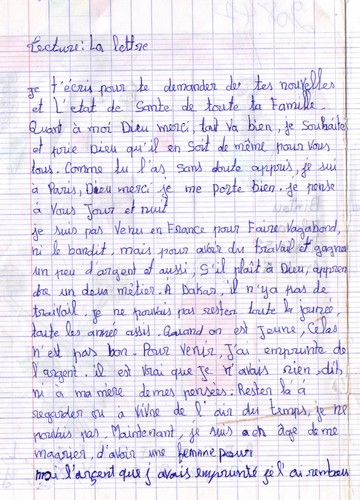 Lecture: La lettre
Je t'écris pour te demander de tes nouvelles
et L'etat de Sante de toute ta Famille.
Quant à moi Dieu merci, tout va bien, je souhaite
et prie Dieu qu'il en Soit de même pour vous
tous. Comme tu l'as sans doute appris, je sui
à Paris, Dieu merci je me porte bien. je pense
à Vous Jour et nuit
je suis pas Venu en France pour Faire Vagabond,
ni le bandit, mais pour avoir du travail et gagna
un peu d'argent et aussi, S'il plaît à Dieu, appren
dre un deux métier. A Dakar, il n'ya pas de
travail. je ne pouvais pas rester toute la journée,
toute les année assis. Quand on est Jeune, Celas
n'est pas bon. Pour Venir, j'ai emprunte de
l'argent. il est vrai que je n'avais rien dit,
ni à ma mère demes pensées. Rester là à
regarder ou à vivre de l'air du temps, je ne
pouvais pas. Maintenant, je suis âge de me
magrier, d'avoir une femme pour
moi l'argent que j'avais emprunté je l'ai rembou